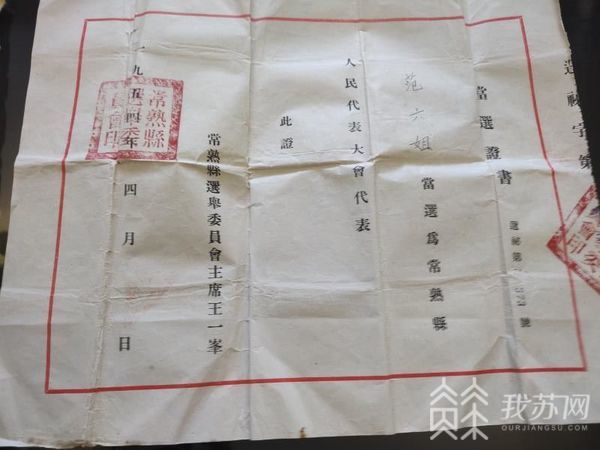 選秘字第
當選證書
選秘第 號
范六姐當選為常熟縣
人民代表大會代表
此證
常熟縣選舉委員會主席王一峯
一九五四年四月 日
常熟縣
我苏网
OURJIANGSU.COM